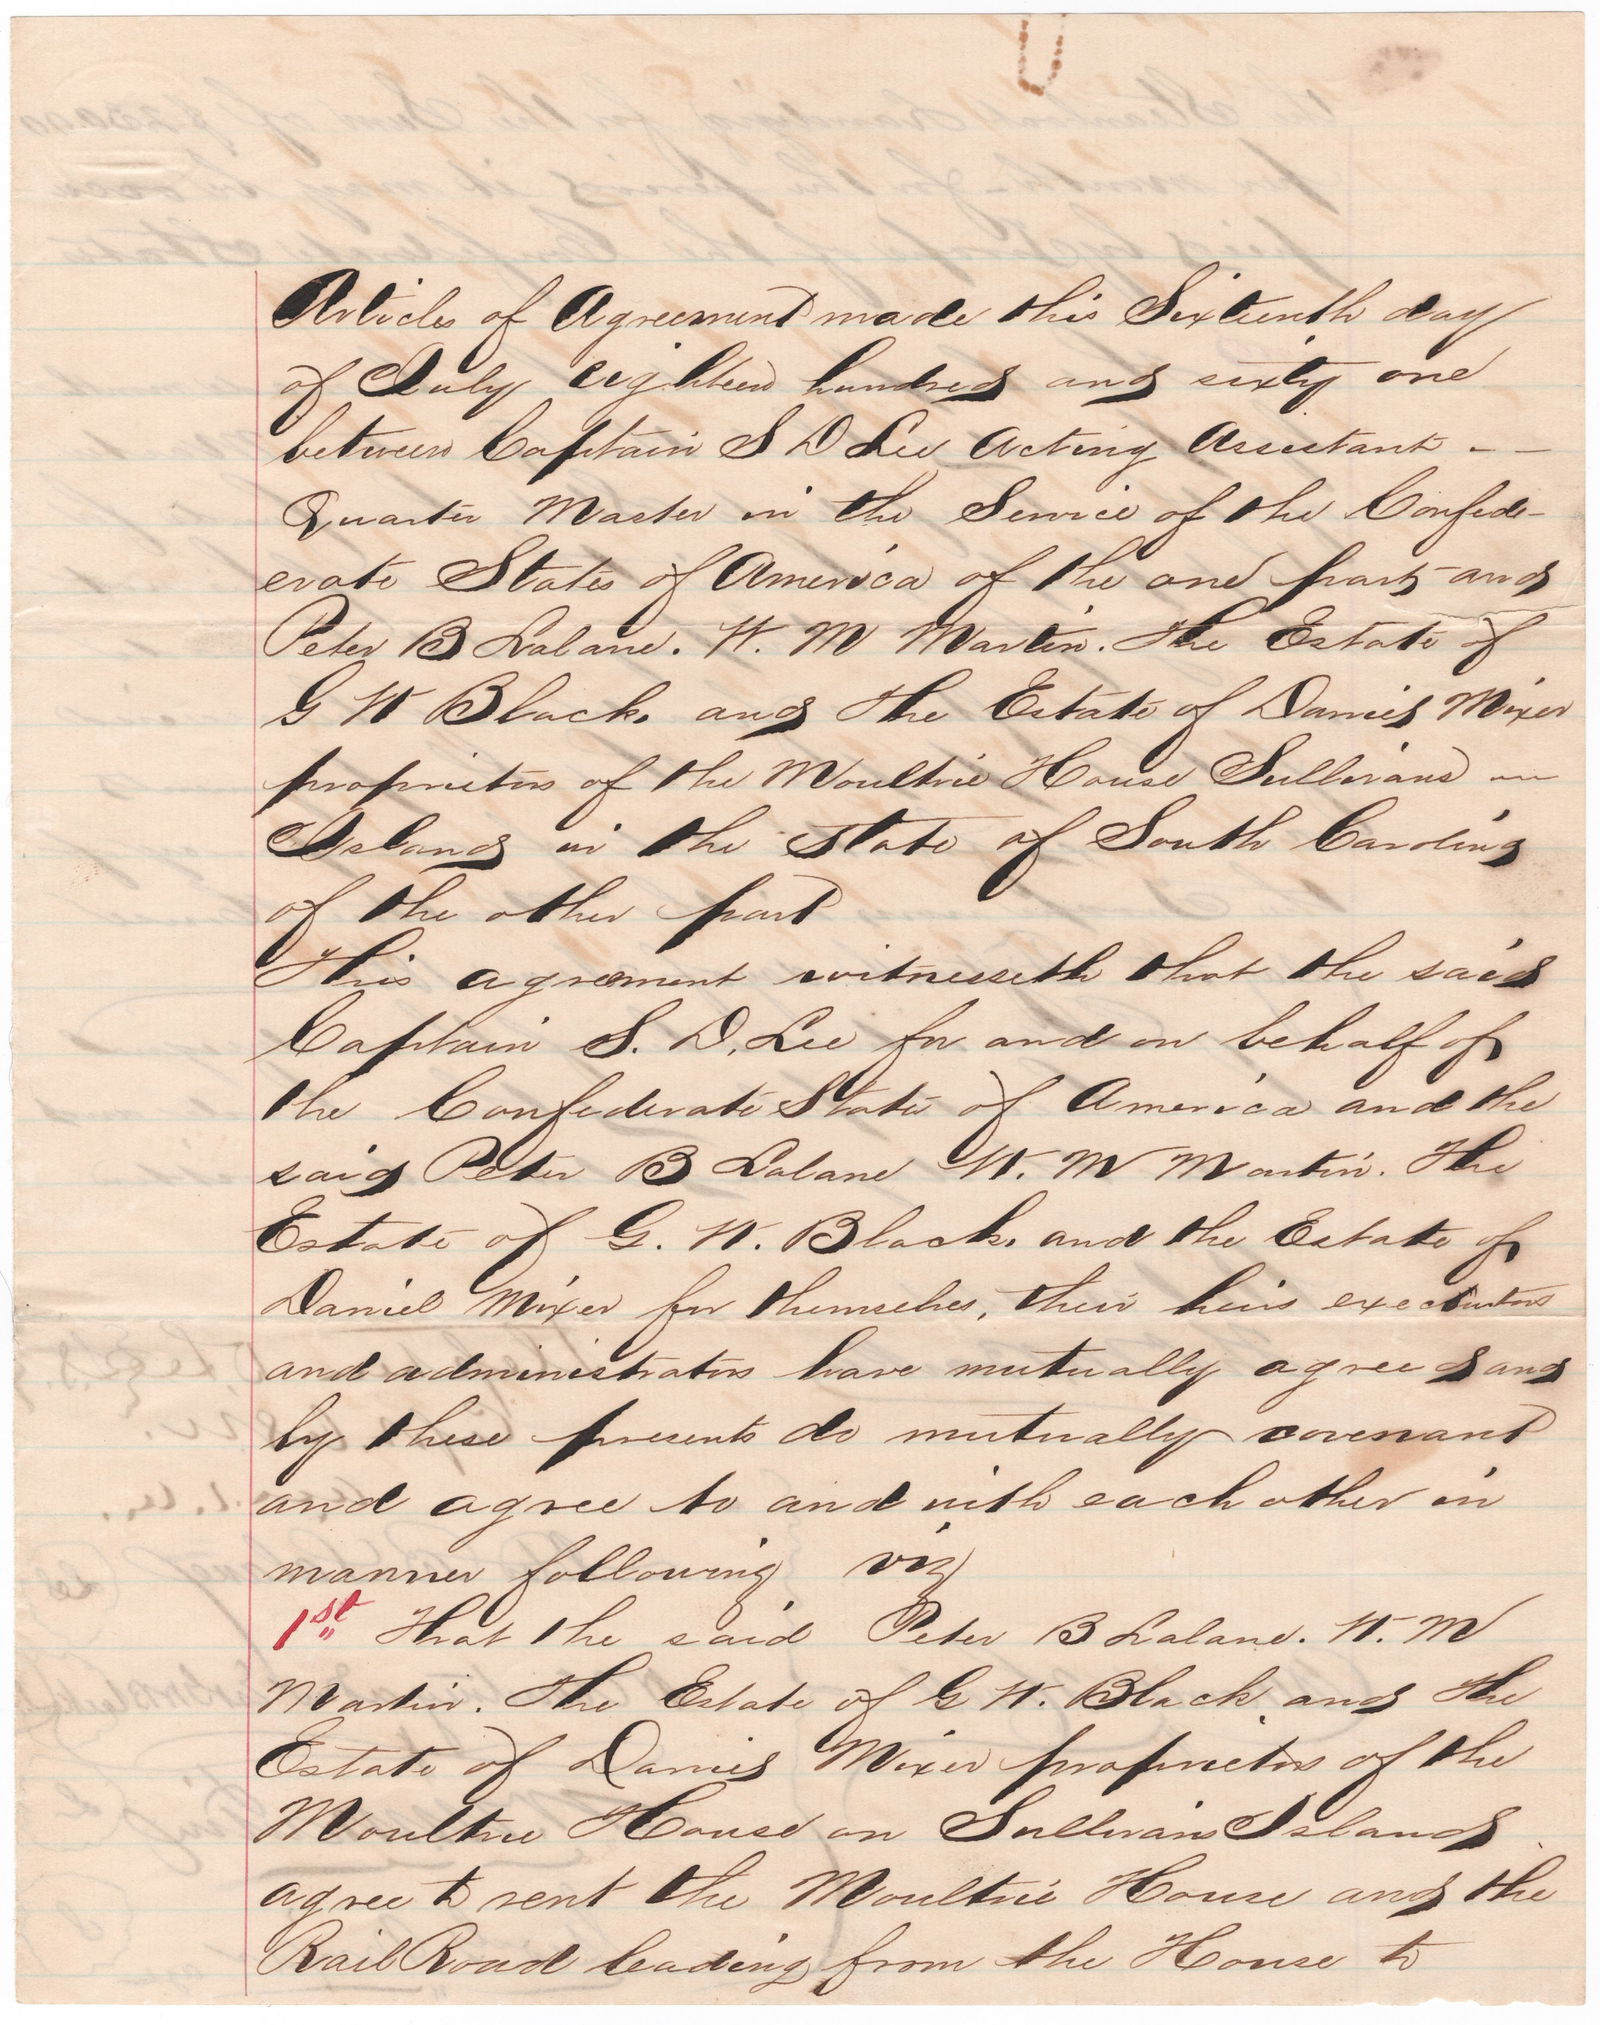 Articles of Agreement made this Sixteenth day
of July eighteen hundred and sixty one
between Captain S D Lee Acting Assistant - -
Quarter Master in the Service of the Confed-
erate States of America of the one part and
Peter B Lalane. W. M Martin. The Estate of
G W Black. and The Estate of Daniel Mixer
proprietors of the Moultrie House Sullivans
Island in the State of South Carolina
of the other part
This agreement witnesseth that the said
Captain S. D. Lee for and on behalf of
the Confederate States of America and the
said Peter B Lalane W. M Martin. The
Estate of G. W. Black. and the Estate of
Daniel Mixer for themselves, their heirs executors
and administrators have mutually agreed and
by these presents do mutually covenant
and agree to and with each other in
manner following viz
1st That the said Peter B Lalane. W. M
Martin. The Estate of G W. Black. and The
Estate of Daniel Mixer proprietors of the
Moultrie House on Sullivans Island
agree to rent the Moultrie House and the
Rail Road leading from the House to